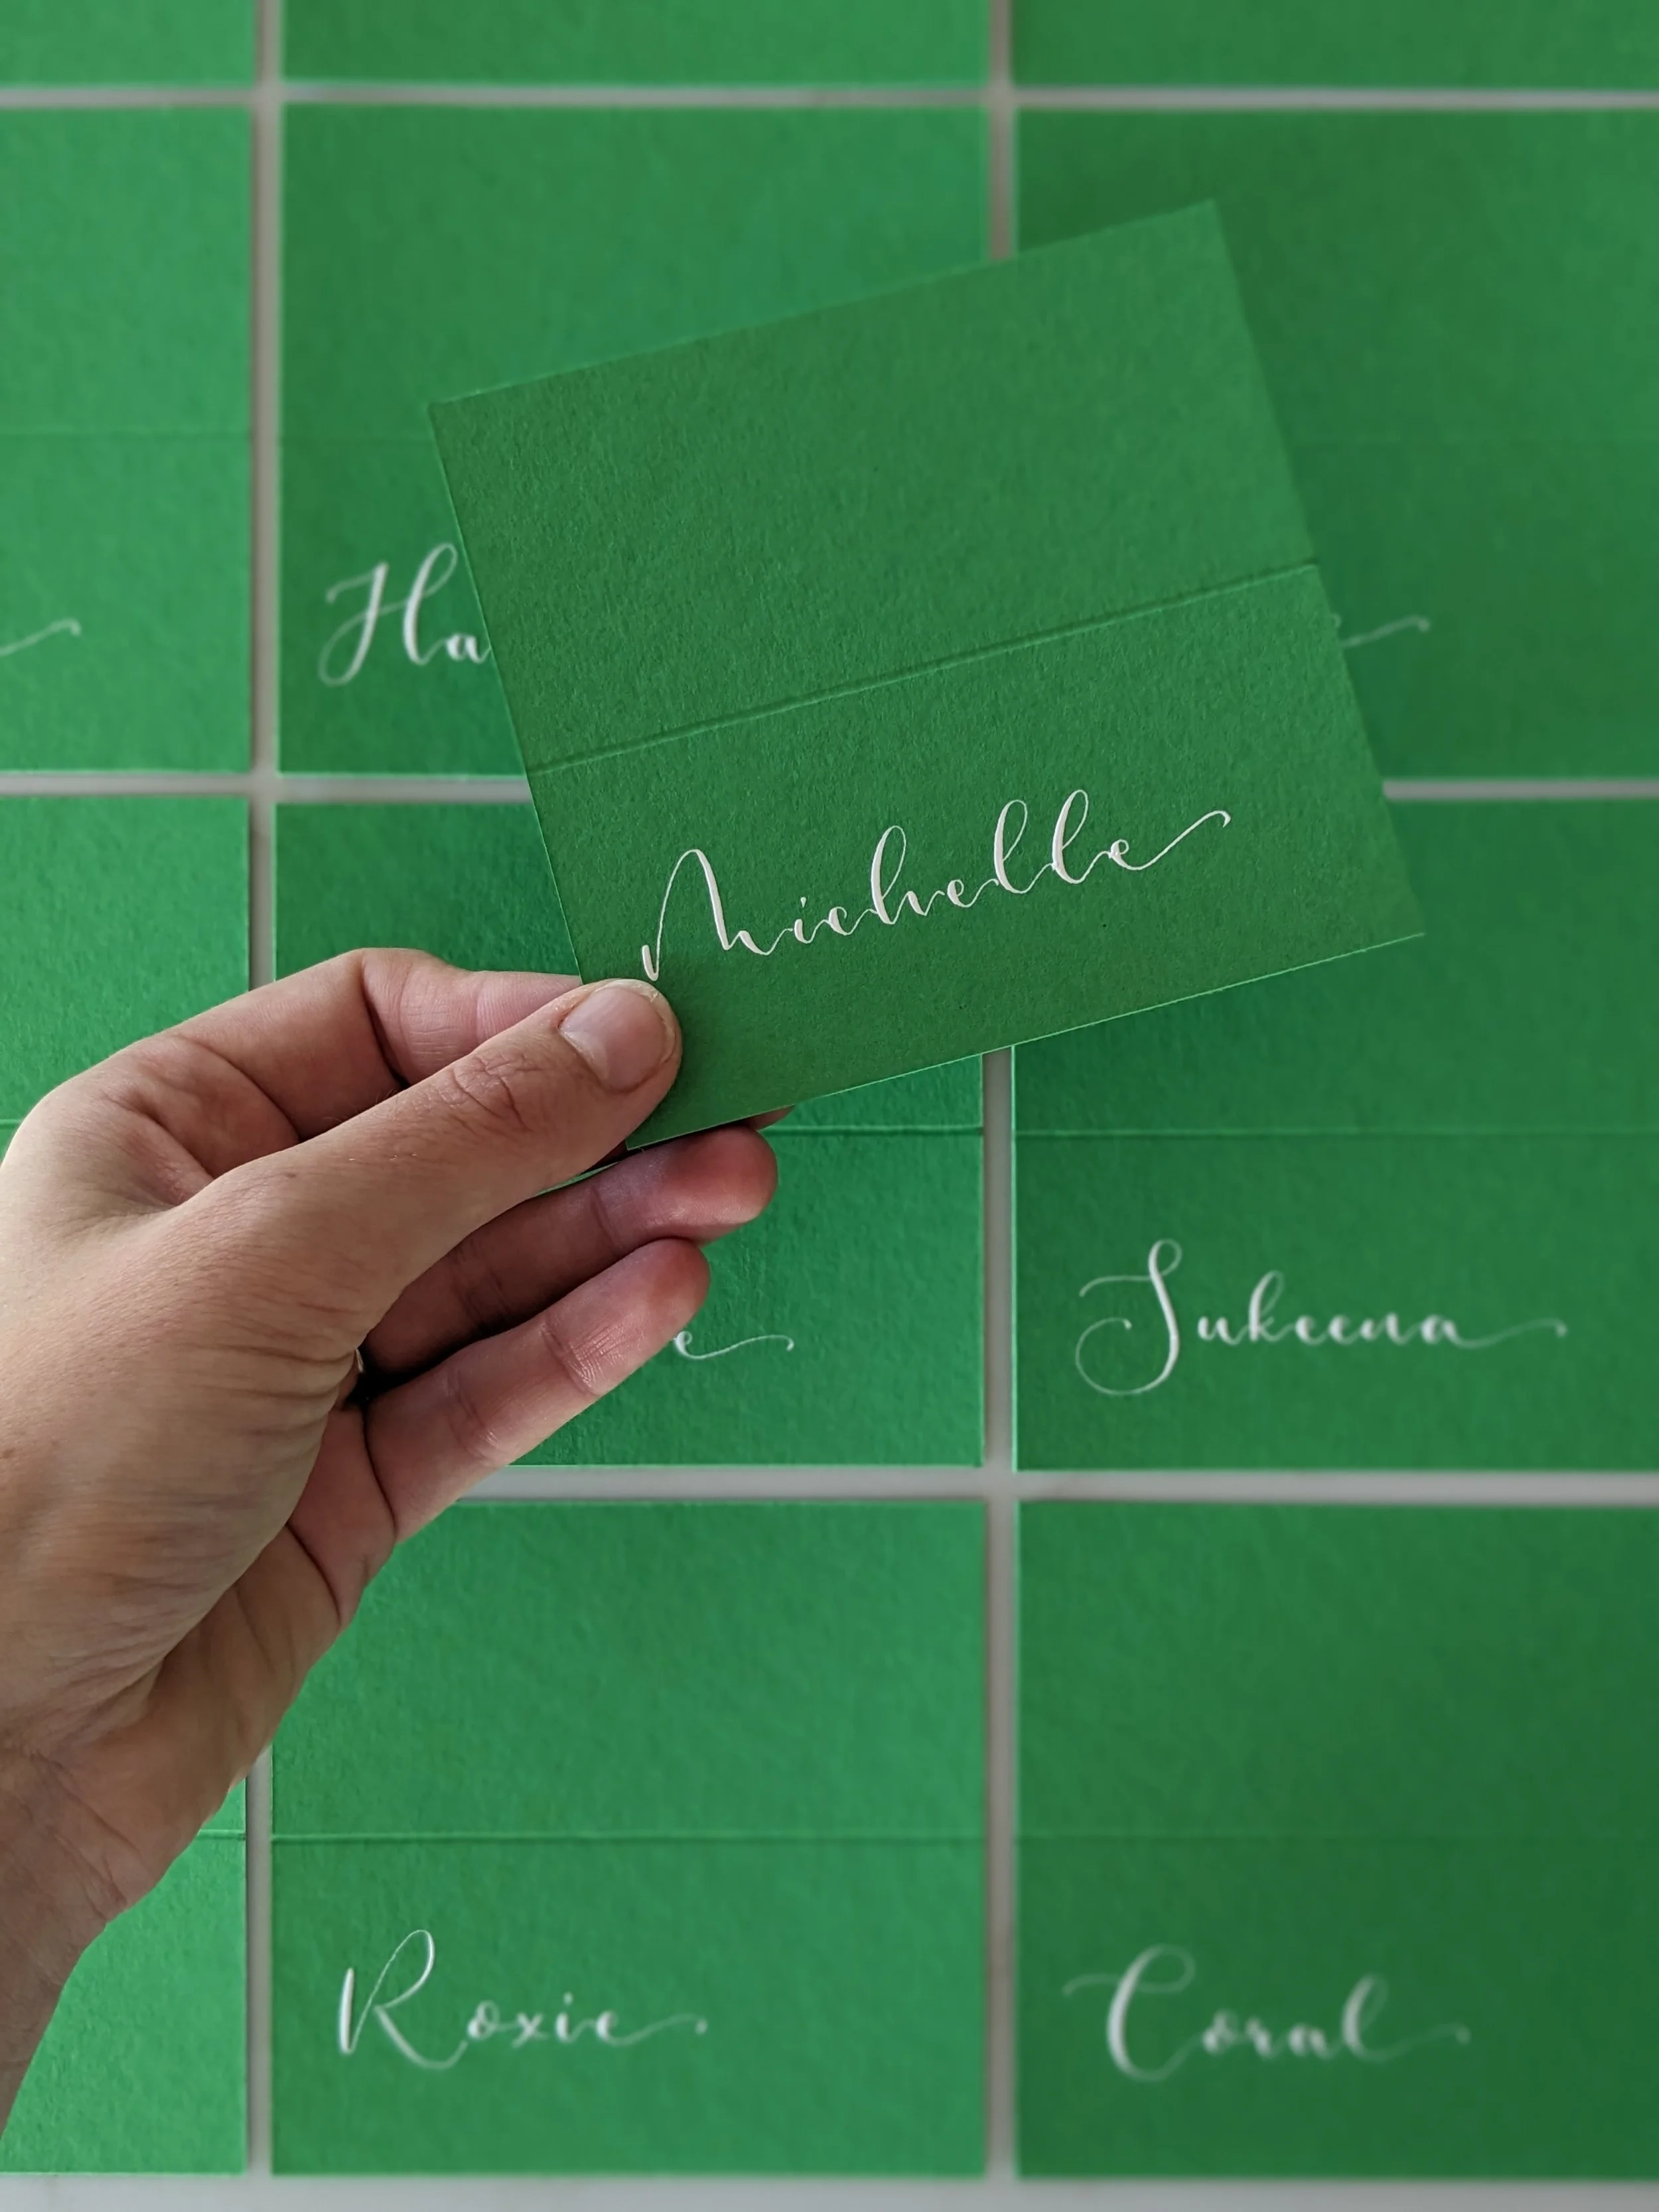 Ha
Michelle
e
Sukeena
Roxie
Coral